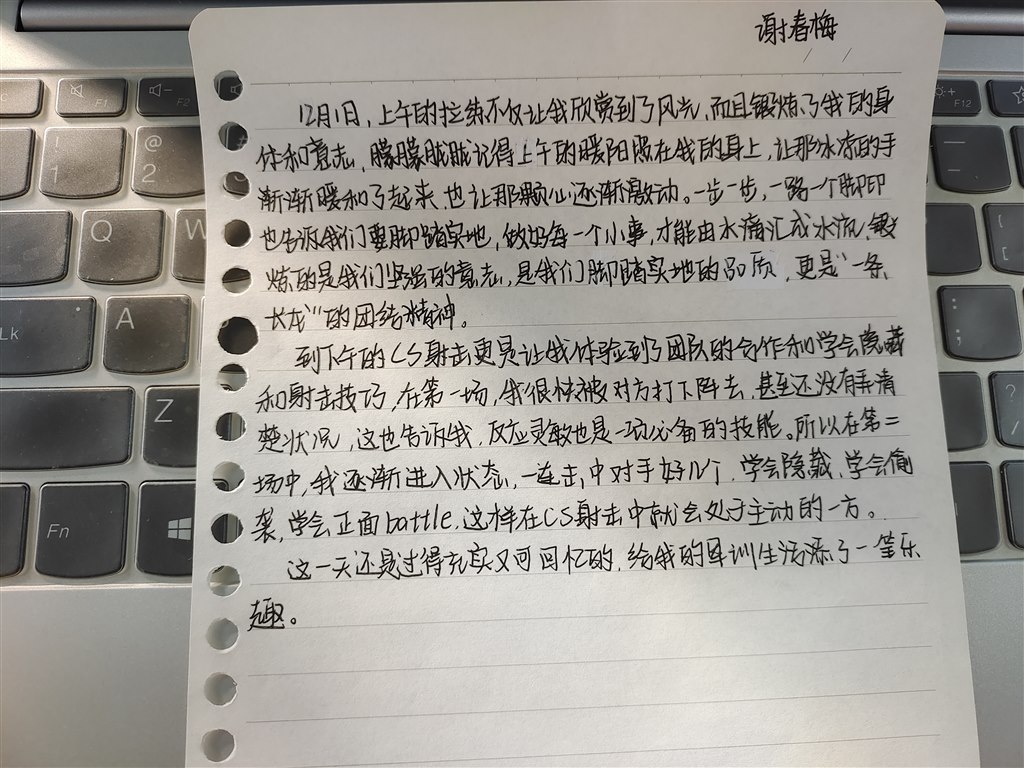 谢春梅
12月1日，上午的拉练不仅让我欣赏到了风光，而且锻炼了我的身
体和意志，朦朦胧胧记得上午的暖阳照在我的身上，让那冰凉的手
渐渐暖和了起来，也让那颗心逐渐激动。一步一步，一路一个脚印
也告诉我们要脚踏实地，做好每一个小事，才能由水滴汇成水流，锻
炼的是我们坚强的意志，是我们脚踏实地的品质，更是“一条
长龙”的团结精神。
到下午的CS射击更是让我体验到了团队的合作和学会隐藏
和射击技巧，在第一场，我很快被对方打下阵去，甚至还没有弄清
楚状况，这也告诉我，反应灵敏也是一项必备的技能。所以在第二
场中，我逐渐进入状态，一连击中对手好几个，学会隐藏，学会偷
袭，学会正面battle，这样在CS射击中就会处于主动的一方。
这一天还是过得充实又可回忆的，给我的军训生活添了一笔乐
趣。
C
F1
F2
F12
!
1
@
2
Q
W
Lk
A
Z
Fn